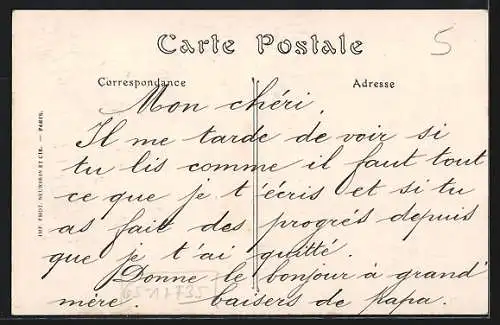 Carte Postale
5
Correspondance
Adresse
Mon chéri.
Il me tarde de voir si
tu lis comme il faut tout
ce que je t'écris et si tu
as fait des progrés depuis
que je t'ai quitté.
Donne le bonjour à grand'
mère. baisers de Papa.
IMP. PHOT. NEURDEIN ET CIE. — PARIS.